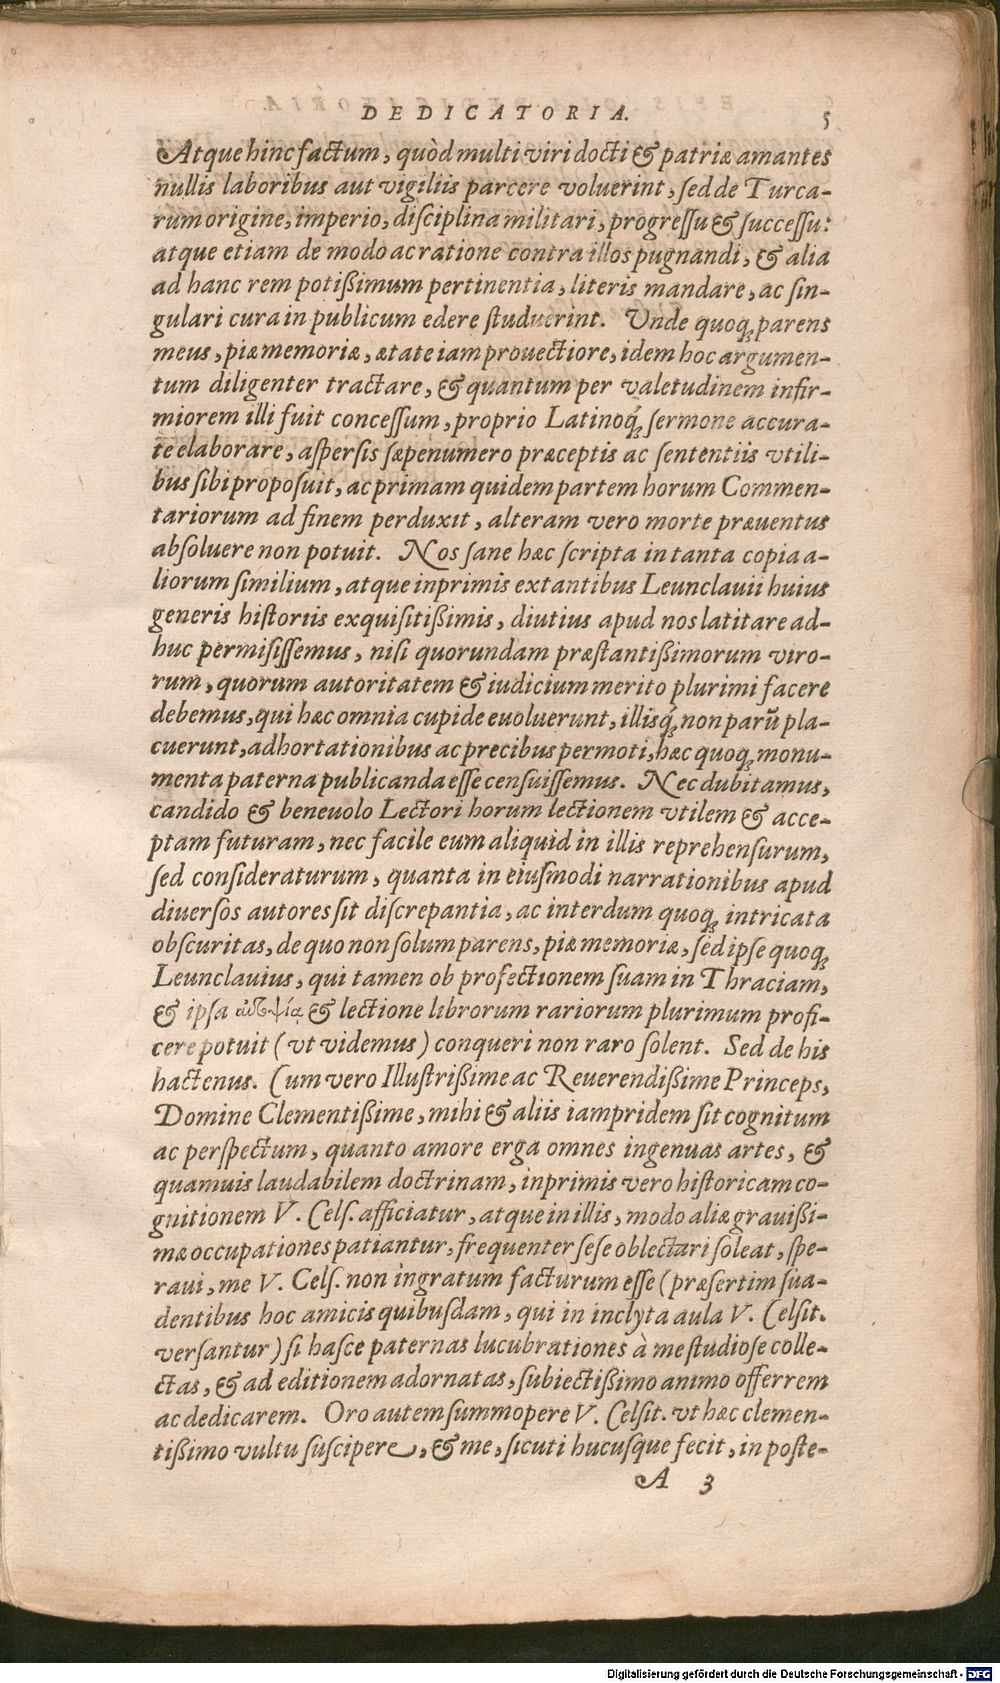 DEDICATORIA. 5
Atque hinc factum, quòd multi viri docti & patriæ amantes
nullis laboribus aut vigiliis parcere voluerint, ſed de Turca-
rum origine, imperio, diſciplina militari, progreſſu & ſucceſſu:
atque etiam de modo ac ratione contra illos pugnandi, & alia
ad hanc rem potißimum pertinentia, literis mandare, ac ſin-
gulari cura in publicum edere ſtuduerint. Unde quoq; parens
meus, piæ memoriæ, ætate iam prouectiore, idem hoc argumen-
tum diligenter tractare, & quantum per valetudinem infir-
miorem illi fuit conceſſum, proprio Latinoq́; ſermone accura-
te elaborare, aſperſis ſæpenumero præceptis ac ſententiis vtili-
bus ſibi propoſuit, ac primam quidem partem horum Commen-
tariorum ad finem perduxit, alteram vero morte præuentus
abſoluere non potuit. Nos ſane hæc ſcripta in tanta copia a-
liorum ſimilium, atque inprimis extantibus Leunclauii huius
generis hiſtoriis exquiſitißimis, diutius apud nos latitare ad-
huc permiſiſſemus, niſi quorundam præſtantißimorum viro-
rum, quorum autoritatem & iudicium merito plurimi facere
debemus, qui hæc omnia cupide euoluerunt, illisq́; non parū pla-
cuerunt, adhortationibus ac precibus permoti, hæc quoq; monu-
menta paterna publicanda eſſe cenſuiſſemus. Nec dubitamus,
candido & beneuolo Lectori horum lectionem vtilem & acce-
ptam futuram, nec facile eum aliquid in illis reprehenſurum,
ſed conſideraturum, quanta in eiuſmodi narrationibus apud
diuerſos autores ſit diſcrepantia, ac interdum quoq; intricata
obſcuritas, de quo non ſolum parens, piæ memoriæ, ſed ipſe quoq;
Leunclauius, qui tamen ob profectionem ſuam in Thraciam,
& ipſa αὐτοψίᾳ & lectione librorum rariorum plurimum profi-
cere potuit (vt videmus) conqueri non raro ſolent. Sed de his
hactenus. Cum vero Illuſtrißime ac Reuerendißime Princeps,
Domine Clementißime, mihi & aliis iampridem ſit cognitum
ac perſpectum, quanto amore erga omnes ingenuas artes, &
quamuis laudabilem doctrinam, inprimis vero hiſtoricam co-
gnitionem V. Celſ. afficiatur, atque in illis, modo aliæ grauißi-
mæ occupationes patiantur, frequenter ſeſe oblectari ſoleat, ſpe-
raui, me V. Celſ. non ingratum facturum eſſe (præſertim ſua-
dentibus hoc amicis quibuſdam, qui in inclyta aula V. Celſit.
verſantur) ſi haſce paternas lucubrationes à me ſtudioſe colle-
ctas, & ad editionem adornatas, ſubiectißimo animo offerrem
ac dedicarem. Oro autem ſummopere V. Celſit. vt hæc clemen-
tißimo vultu ſuſcipere, & me, ſicuti hucuſque fecit, in poſte-
A 3
Digitalisierung gefördert durch die Deutsche Forschungsgemeinschaft - DFG